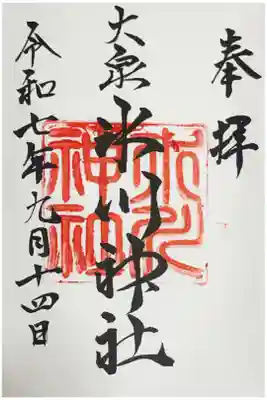 奉拝
大泉
氷川神社
令和七年九月十四日
氷川
神社